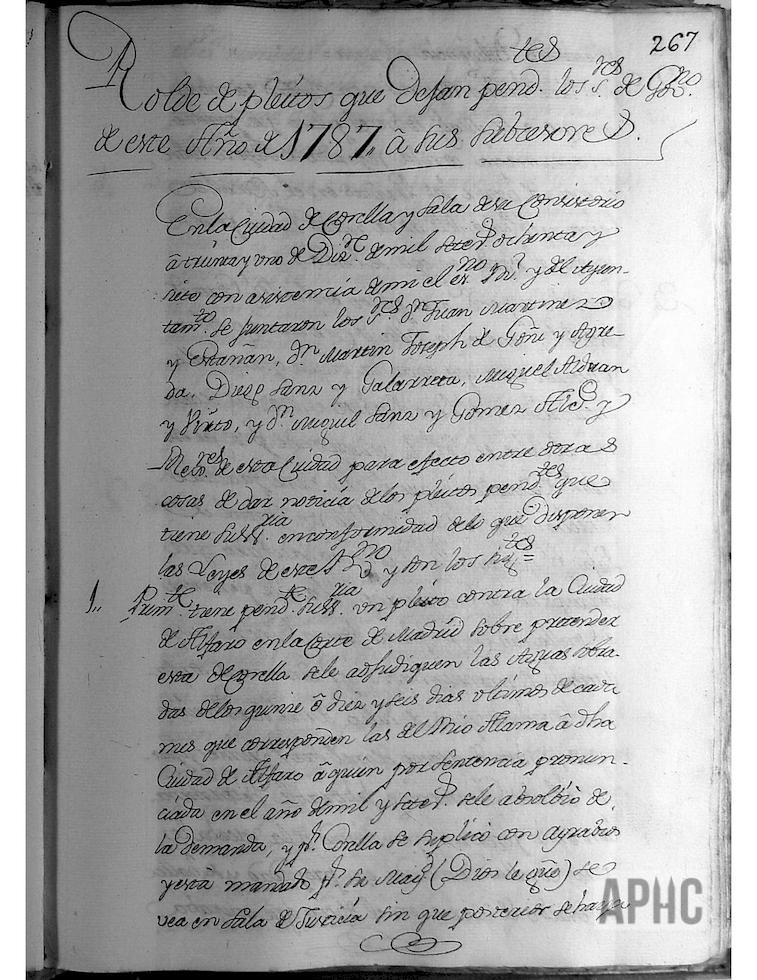 267
Rolde de pleitos que Dejan pend.tes los s.res de Gov.no
de este Año de 1787,, â sus subcesores.
En la Ciudad de Corella y sala de su Consistorio
â treinta y uno de Diz.re de mil setez.s ochenta y
siete con asistencia de mi el es.no R.l y del Ayun-
tam.to se juntaron los s.res d.n Juan Martinez
y Estañan, d.n Martin Joseph de Goñi y Agre-
da, Diego Sanz y Galarreta, Miguel Alduan
y Virto, y d.n Miguel Sanz y Gomez Alc.e y
Rexid.res de esta Ciudad para efecto entre otras
cosas de dar noticia de los pleitos pend.tes que
tiene su ss.ria en conformidad de lo que disponen
las Leyes de este R.no y son los sig.tes =
1,, Prim.te tiene pend.te su ss.ria un pleito contra la Ciudad
de Alfaro en la Corte de Madrid sobre pretender
esta de Corella se le adjudiquen las Aguas sobra-
das de los quince ô diez y seis dias ultimos de cada
mes que corresponden las del Rio Alama â dha
Ciudad de Alfaro â quien por Sentencia pronun-
ciada en el año de mil y setez.s se le absolbiò de
la demanda, y p.r Corella se suplicò con agravios
y està mandado p.r su Mag.d (Dios le gûe) se
vea en Sala de Justicia sin que posterior se haya
APHC